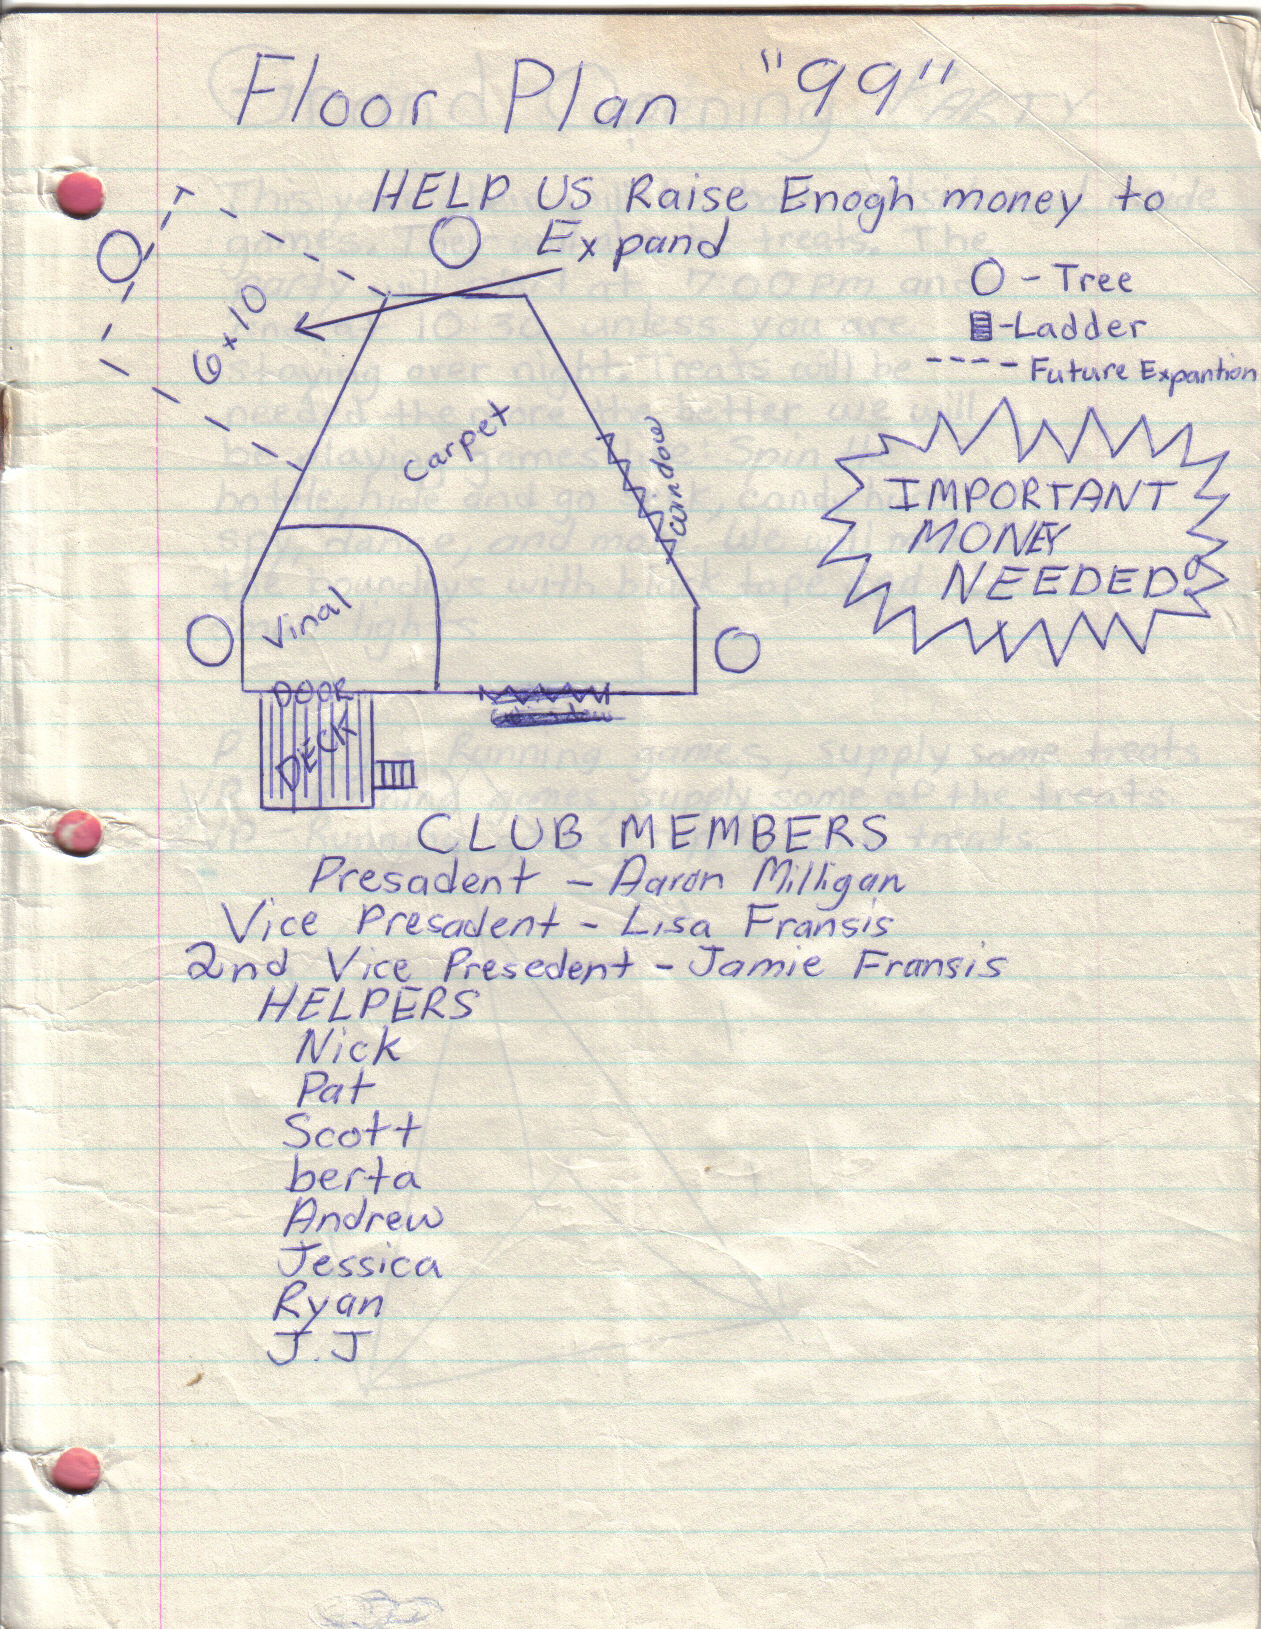 Floor Plan "99"
HELP US Raise Enogh money to
Expand
O - Tree
-Ladder
---- Future Expantion
6x10
Carpet
window
IMPORTANT
MONEY
NEEDED!
Vinal
DOOR
window
DECK
CLUB MEMBERS
Presadent - Aaron Milligan
Vice Presadent - Lisa Fransis
2nd Vice Presedent - Jamie Fransis
HELPERS
Nick
Pat
Scott
berta
Andrew
Jessica
Ryan
J.J